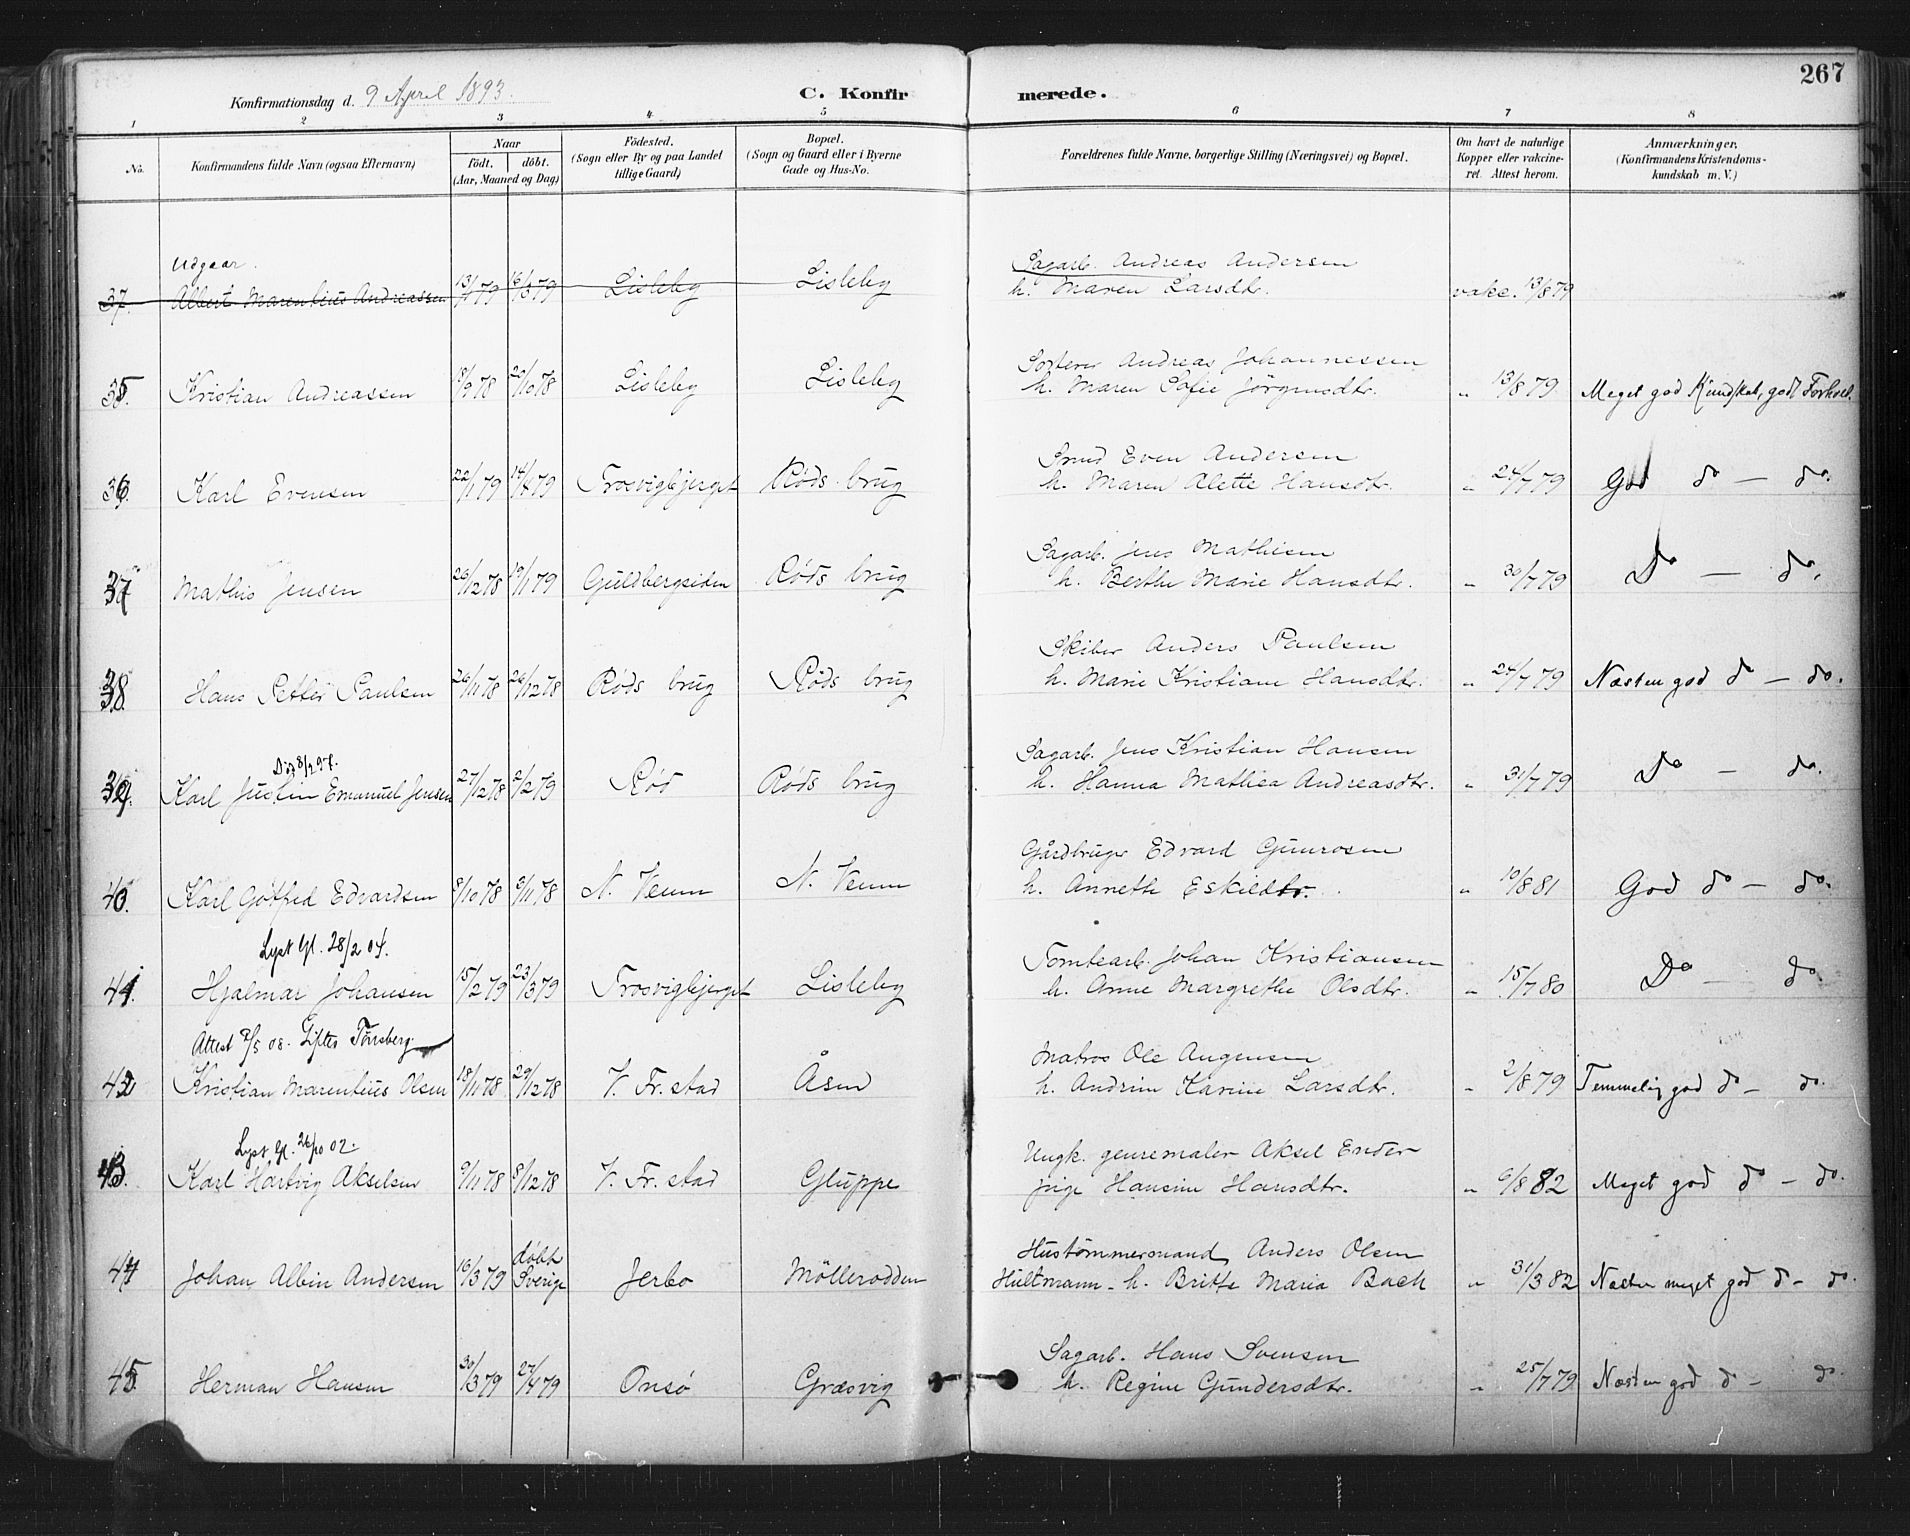 267
Konfirmationsdag d. 9 April 1893.
C. Konfirmerede.
1 2 3 4 5 6 7 8
No.
Konfirmandens fulde Navn (ogsaa Efternavn)
Naar
født. døbt.
(Aar, Maaned og Dag)
Fødested.
(Sogn eller By og paa Landet
tillige Gaard)
Bopæl.
(Sogn og Gaard eller i Byerne
Gade og Hus-No.
Forældrenes fulde Navne, borgerlige Stilling (Næringsvei) og Bopæl.
Om havt de naturlige
Kopper eller vakcine-
ret. Attest herom.
Anmærkninger,
(Konfirmandens Kristendoms-
kundskab m. V.)
Udgaar.
37. Albert Marentius Andreassen 13/1 79 16/3 79 Lisleby Lisleby Sagarb. Andreas Andersen
h. Maren Larsdtr. vakc. 13/8 79
35. Kristian Andreassen 18/9 78 20/10 78 Lisleby Lisleby Sorterer Andreas Johannessen
h. Maren Sofie Jörgensdtr. " 13/8 79 Meget god Kundskab, godt Forhold.
36. Karl Evensen 22/1 79 14/4 79 Trosvigbjerget Røds brug Smed Even Andersen
h. Maren Alette Hansdtr. " 24/7 79 God do — do.
37 Mathis Jensen 26/12 78 19/1 79 Guldbergsiden Røds brug Sagarb. Jens Mathisen
h. Berthe Marie Hansdtr. " 30/7 79 Do — do.
38. Hans Petter Paulsen 26/11 78 26/12 78 Røds brug Røds brug Skiber Anders Paulsen
h. Marie Kristiane Hansdtr. " 24/7 79 Næsten god do — do.
39. Karl Justin Emanuel Jensen 27/12 78 2/2 79 Rød Røds brug Sagarb. Jens Kristian Hansen
h. Hanna Mathea Andreasdtr. " 31/7 79 Do — do.
40. Karl Gotfred Edvardsen 9/10 78 3/11 78 N. Veum N. Veum Gårdbruger Edvard Gunrosen
h. Annethe Eskildtr. " 10/8 81 God do — do.
Lyst Gl. 28/2 04.
41. Hjalmar Johansen 15/2 79 23/3 79 Trosvigbjerget Lisleby Tomtearb. Johan Kristiansen
h. Anne Margrethe Olsdtr. " 15/7 80 Do — do.
Attest 9/5 08. Giftes Tønsberg
42 Kristian Marentius Olsen 18/11 78 29/12 78 V. Fr. stad Åsen Matros Ole Augensen
h. Andrine Karine Larsdtr. " 2/8 79 Temmelig god do — do.
Lyst Gl. 26/10 02.
43. Karl Hartvig Akselsen 9/11 78 8/12 78 V. Fr. stad Gluppe Ungk. genremaler Aksel Ender
pige Hansine Hansdtr. " 6/8 82 Meget god do — do.
44 Johan Albin Andersen 16/3 79 døbt Sverige Jerbo Möllerodden Hustømmermand Anders Olsen
Hultmann - h. Britte Maria Back " 31/3 82 Næsten meget god do — do.
45. Herman Hansen 30/3 79 27/4 79 Onsö Græsvig Sagarb. Hans Svensen
h. Regine Gundersdtr. " 25/7 79 Næsten god do — do.